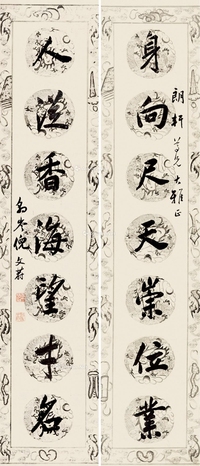 身向尺天崇位業
朗軒尊兄大雅正
人從香海望才名
豹岑倪文蔚